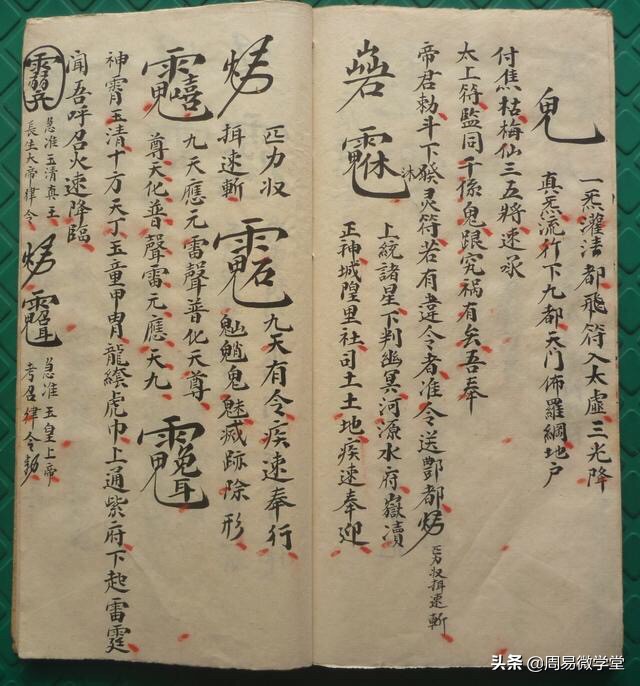 鬼
一炁濯清都飛符入太虛三光降
真炁流行下九都天門佈羅綱地戶
付焦枯梅仙三五將速承
太上符監同千係鬼跟究祸有矣吾奉
帝君勅斗下發灵符若有違令者准令送酆都
匹力収揖速斬
上統諸星下判幽冥河源水府嶽瀆
正神城隍里社司土土地疾速奉迎
匹力収
揖速斬
九天有令疾速奉行
魈鬼魅臧跡除形
九天應元雷聲普化天尊
尊天化普聲雷元應天九
神霄玉清十方天丁玉童甲胄龍繪虎巾上通紫府下起雷霆
聞吾呼召火速降臨
急准玉清真王
長生大帝律令
急准玉皇上帝
考召律令勅
头条 @周易微学堂